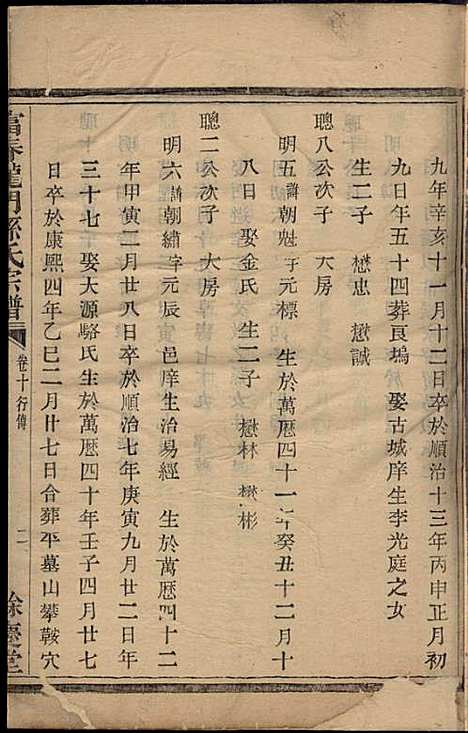 九年辛亥十一月十二日卒於順治十三年丙申正月初
九日年五十四葬良塢 娶古城庠生李光庭之女
生二子 懋忠 懋誠
聰八公次子 大房
明五諱朝魁字元標 生於萬厯四十一年癸丑十二月十
八日 娶金氏 生二子 懋林 懋彬
聰二公次子 大房
明六諱朝繡字元辰 邑庠生治易經 生於萬厯四十二
年甲寅二月廿八日卒於順治七年庚寅九月廿二日年
三十七 娶大源駱氏生於萬厯四十年壬子四月廿七
日卒於康熙四年乙巳二月廿七日合葬平墓山攀鞍穴
富春龍門孫氏宗譜 卷十行傳 二 餘慶堂